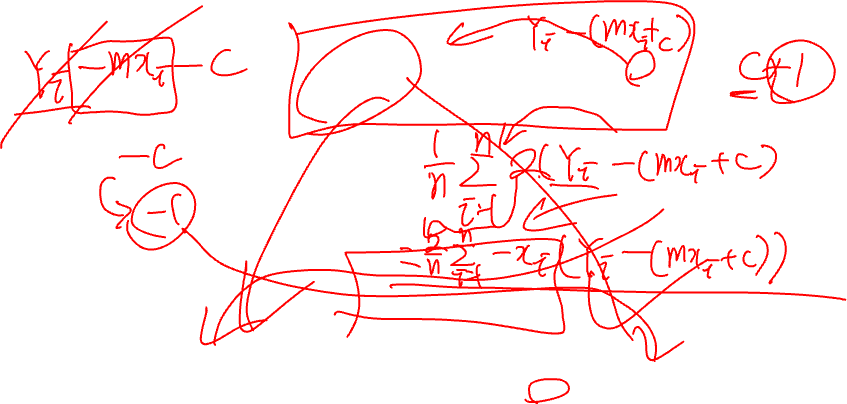 Yᵢ - (mxᵢ + c)
Yᵢ - mxᵢ - c
c + 1
1/n Σ i=1 n 2(Yᵢ - (mxᵢ + c)
-c
-1
n Σ i=1 n - xᵢ (Yᵢ - (mxᵢ + c))